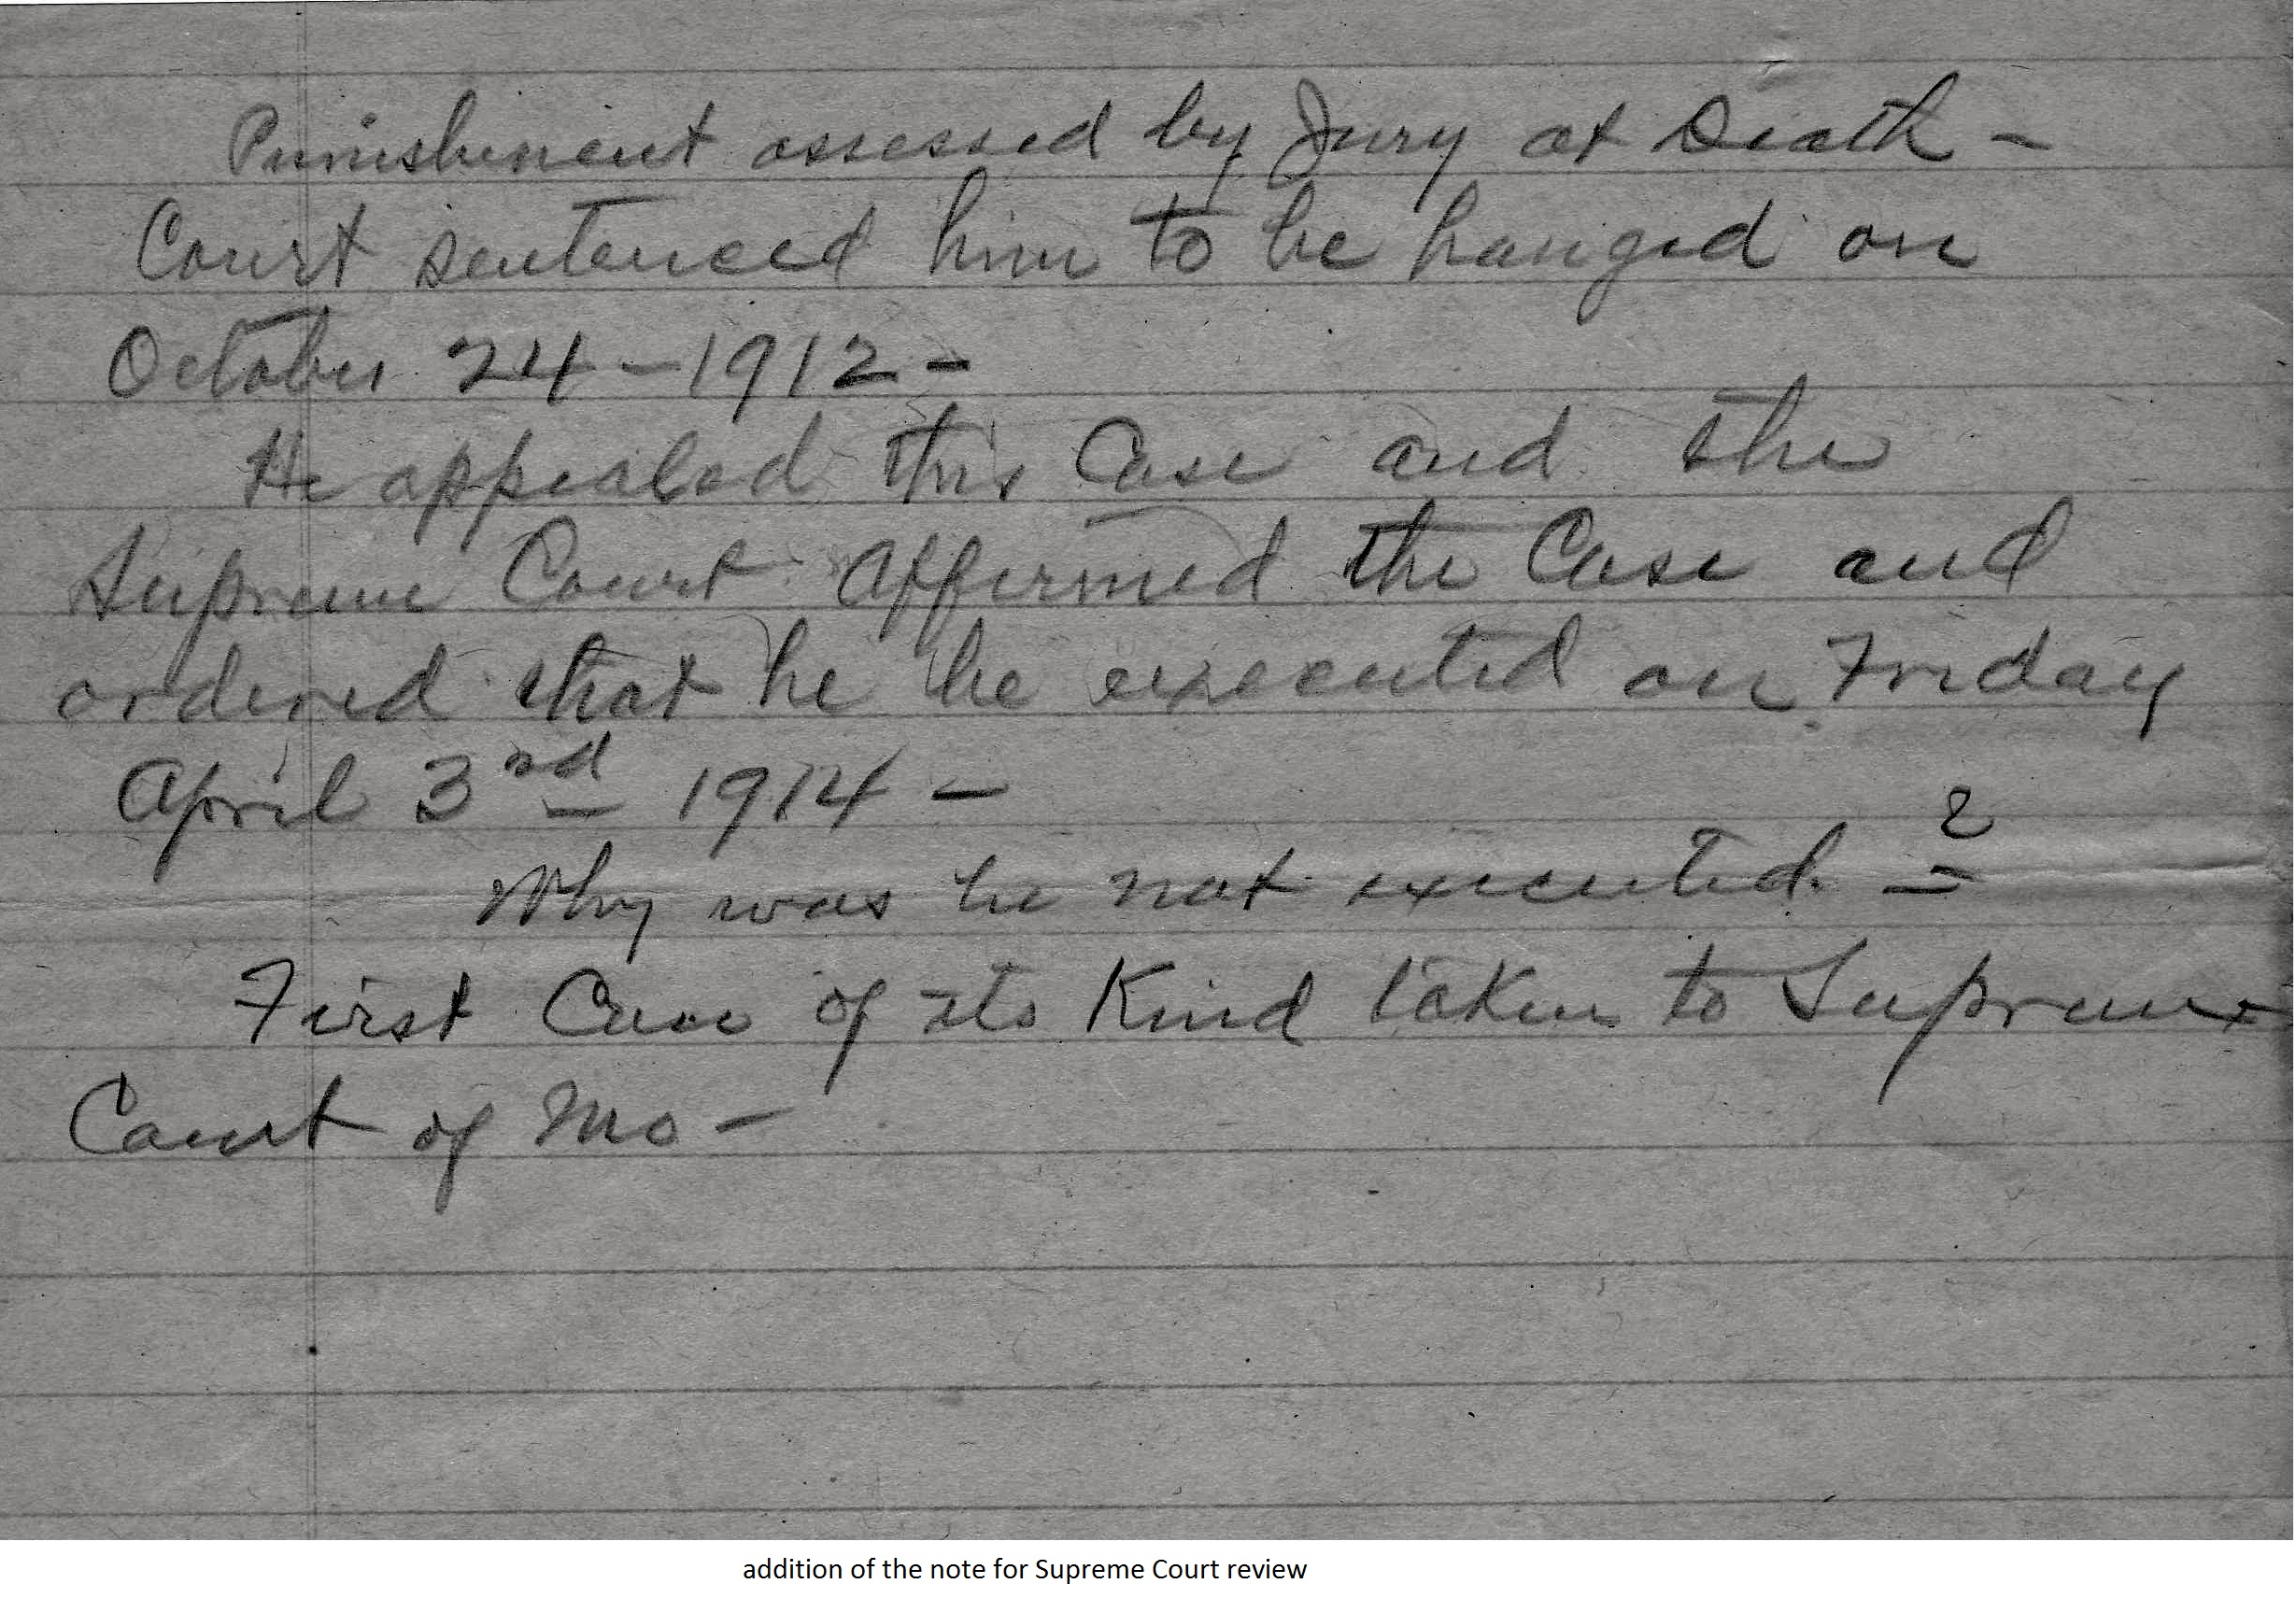 Punishment assessed by Jury at Death -
Court sentenced him to be hanged on
October 24 - 1912 -
He appealed this Case and the
Supreme Court affirmed the Case and
ordered that he be executed on Friday
April 3rd 1914 -
Why was he not executed. ?
First Case of its Kind taken to Supreme
Court of Mo -
addition of the note for Supreme Court review